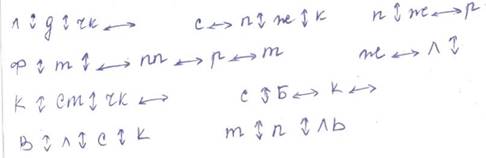 л ↕ д ↕ чк ↔ с ↔ п ↕ ж ↕ к п ↕ ж ↔ р
ф ↕ т ↕ ↔ пп ↔ р ↔ т ж ↔ л ↕
К ↕ ст ↕ чк ↔ с ↕ Б ↔ к ↔
В ↕ л ↕ с ↕ к т ↕ п ↕ ль